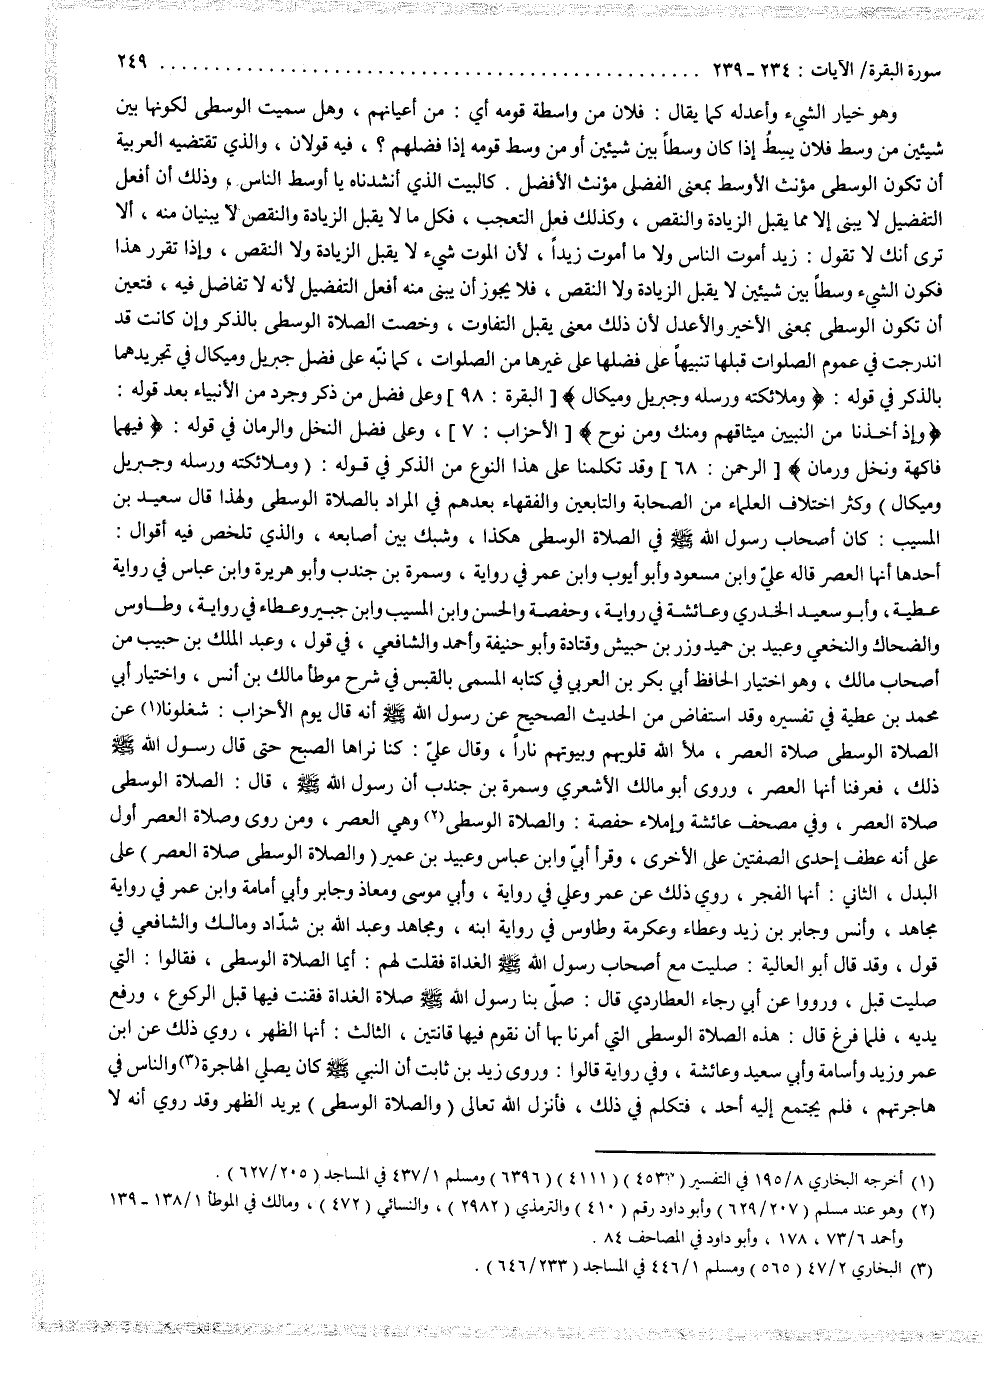 سورة البقرة/ الآيات : ٢٣٤ ـ ٢٣٩ ........................................ ٢٤٩
وهو خيار الشيء وأعدله كما يقال : فلان من واسطة قومه أي : من أعيانهم ، وهل سميت الوسطى لكونها بين
شيئين من وسط فلان يسِطُ إذا كان وسطاً بين شيئين أو من وسط قومه إذا فضلهم ؟ ، فيه قولان ، والذي تقتضيه العربية
أن تكون الوسطى مؤنث الأوسط بمعنى الفضلى مؤنث الأفضل . كالبيت الذي أنشدناه يا أوسط الناس ، وذلك أن أفعل
التفضيل لا يبنى إلا مما يقبل الزيادة والنقص ، وكذلك فعل التعجب ، فكل ما لا يقبل الزيادة والنقص لا يبنيان منه ، ألا
ترى أنك لا تقول : زيد أموت الناس ولا ما أموت زيداً ، لأن الموت شيء لا يقبل الزيادة ولا النقص ، وإذا تقرر هذا
فكون الشيء وسطاً بين شيئين لا يقبل الزيادة ولا النقص ، فلا يجوز أن يبنى منه أفعل التفضيل لأنه لا تفاضل فيه ، فتعين
أن تكون الوسطى بمعنى الأخير والأعدل لأن ذلك معنى يقبل التفاوت ، وخصت الصلاة الوسطى بالذكر وإن كانت قد
اندرجت في عموم الصلوات قبلها تنبيهاً على فضلها على غيرها من الصلوات ، كما نبّه على فضل جبريل وميكال في تجريدهما
بالذكر في قوله : ﴿ وملائكته ورسله وجبريل وميكال ﴾ [ البقرة : ٩٨ ] وعلى فضل من ذكر وجرد من الأنبياء بعد قوله :
﴿ وإذ أخذنا من النبيين ميثاقهم ومنك ومن نوح ﴾ [ الأحزاب : ٧ ] ، وعلى فضل النخل والرمان في قوله : ﴿ فيهما
فاكهة ونخل ورمان ﴾ [ الرحمن : ٦٨ ] وقد تكلمنا على هذا النوع من الذكر في قوله : ( وملائكته ورسله وجبريل
وميكال ) وكثر اختلاف العلماء من الصحابة والتابعين والفقهاء بعدهم في المراد بالصلاة الوسطى ولهذا قال سعيد بن
المسيب : كان أصحاب رسول الله ﷺ في الصلاة الوسطى هكذا ، وشبك بين أصابعه ، والذي تلخص فيه أقوال :
أحدها أنها العصر قاله عليّ وابن مسعود وأبو أيوب وابن عمر في رواية ، وسمرة بن جندب وأبو هريرة وابن عباس في رواية
عطية ، وأبو سعيد الخدري وعائشة في رواية ، وحفصة والحسن وابن المسيب وابن جبير وعطاء في رواية ، وطاوس
والضحاك والنخعي وعبيد بن حميد وزر بن حبيش وقتادة وأبو حنيفة وأحمد والشافعي ، في قول ، وعبد الملك بن حبيب من
أصحاب مالك ، وهو اختيار الحافظ أبي بكر بن العربي في كتابه المسمى بالقبس في شرح موطأ مالك بن أنس ، واختيار أبي
محمد بن عطية في تفسيره وقد استفاض من الحديث الصحيح عن رسول الله ﷺ أنه قال يوم الأحزاب : شغلونا(١) عن
الصلاة الوسطى صلاة العصر ، ملأ الله قلوبهم وبيوتهم ناراً ، وقال عليّ : كنا نراها الصبح حتى قال رسول الله ﷺ
ذلك ، فعرفنا أنها العصر ، وروى أبو مالك الأشعري وسمرة بن جندب أن رسول الله ﷺ ، قال : الصلاة الوسطى
صلاة العصر ، وفي مصحف عائشة وإملاء حفصة : والصلاة الوسطى(٢) وهي العصر ، ومن روى وصلاة العصر أول
على أنه عطف إحدى الصفتين على الأخرى ، وقرأ أبيّ وابن عباس وعبيد بن عمير ( والصلاة الوسطى صلاة العصر ) على
البدل ، الثاني : أنها الفجر ، روي ذلك عن عمر وعلي في رواية ، وأبي موسى ومعاذ وجابر وأبي أمامة وابن عمر في رواية
مجاهد ، وأنس وجابر بن زيد وعطاء وعكرمة وطاوس في رواية ابنه ، ومجاهد وعبد الله بن شدّاد ومالك والشافعي في
قول ، وقد قال أبو العالية : صليت مع أصحاب رسول الله ﷺ الغداة فقلت لهم : أيما الصلاة الوسطى ، فقالوا : التي
صليت قبل ، ورووا عن أبي رجاء العطاردي قال : صلّى بنا رسول الله ﷺ صلاة الغداة فقنت فيها قبل الركوع ، ورفع
يديه ، فلما فرغ قال : هذه الصلاة الوسطى التي أمرنا بها أن نقوم فيها قانتين ، الثالث : أنها الظهر ، روي ذلك عن ابن
عمر وزيد وأسامة وأبي سعيد وعائشة ، وفي رواية قالوا : وروى زيد بن ثابت أن النبي ﷺ كان يصلي الهاجرة(٣) والناس في
هاجرتهم ، فلم يجتمع إليه أحد ، فتكلم في ذلك ، فأنزل الله تعالى ( والصلاة الوسطى ) يريد الظهر وقد روي أنه لا
(١) أخرجه البخاري ١٩٥/٨ في التفسير ( ٤٥٣٣ ) ( ٤١١١ ) ( ٦٣٩٦ ) ومسلم ٤٣٧/١ في المساجد ( ٦٢٧/٢٠٥ ) .
(٢) وهو عند مسلم ( ٦٢٩/٢٠٧ ) وأبو داود رقم ( ٤١٠ ) والترمذي ( ٢٩٨٢ ) ، والنسائي ( ٤٧٢ ) ، ومالك في الموطأ ١٣٨/١ ـ ١٣٩
وأحمد ٧٣/٦ ، ١٧٨ ، وأبو داود في المصاحف ٨٤ .
(٣) البخاري ٤٧/٢ ( ٥٦٥ ) ومسلم ٤٤٦/١ في المساجد ( ٦٤٦/٢٣٣ ) .